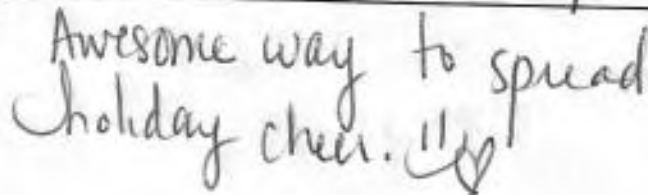 Awesome way to spread
holiday cheer. !!